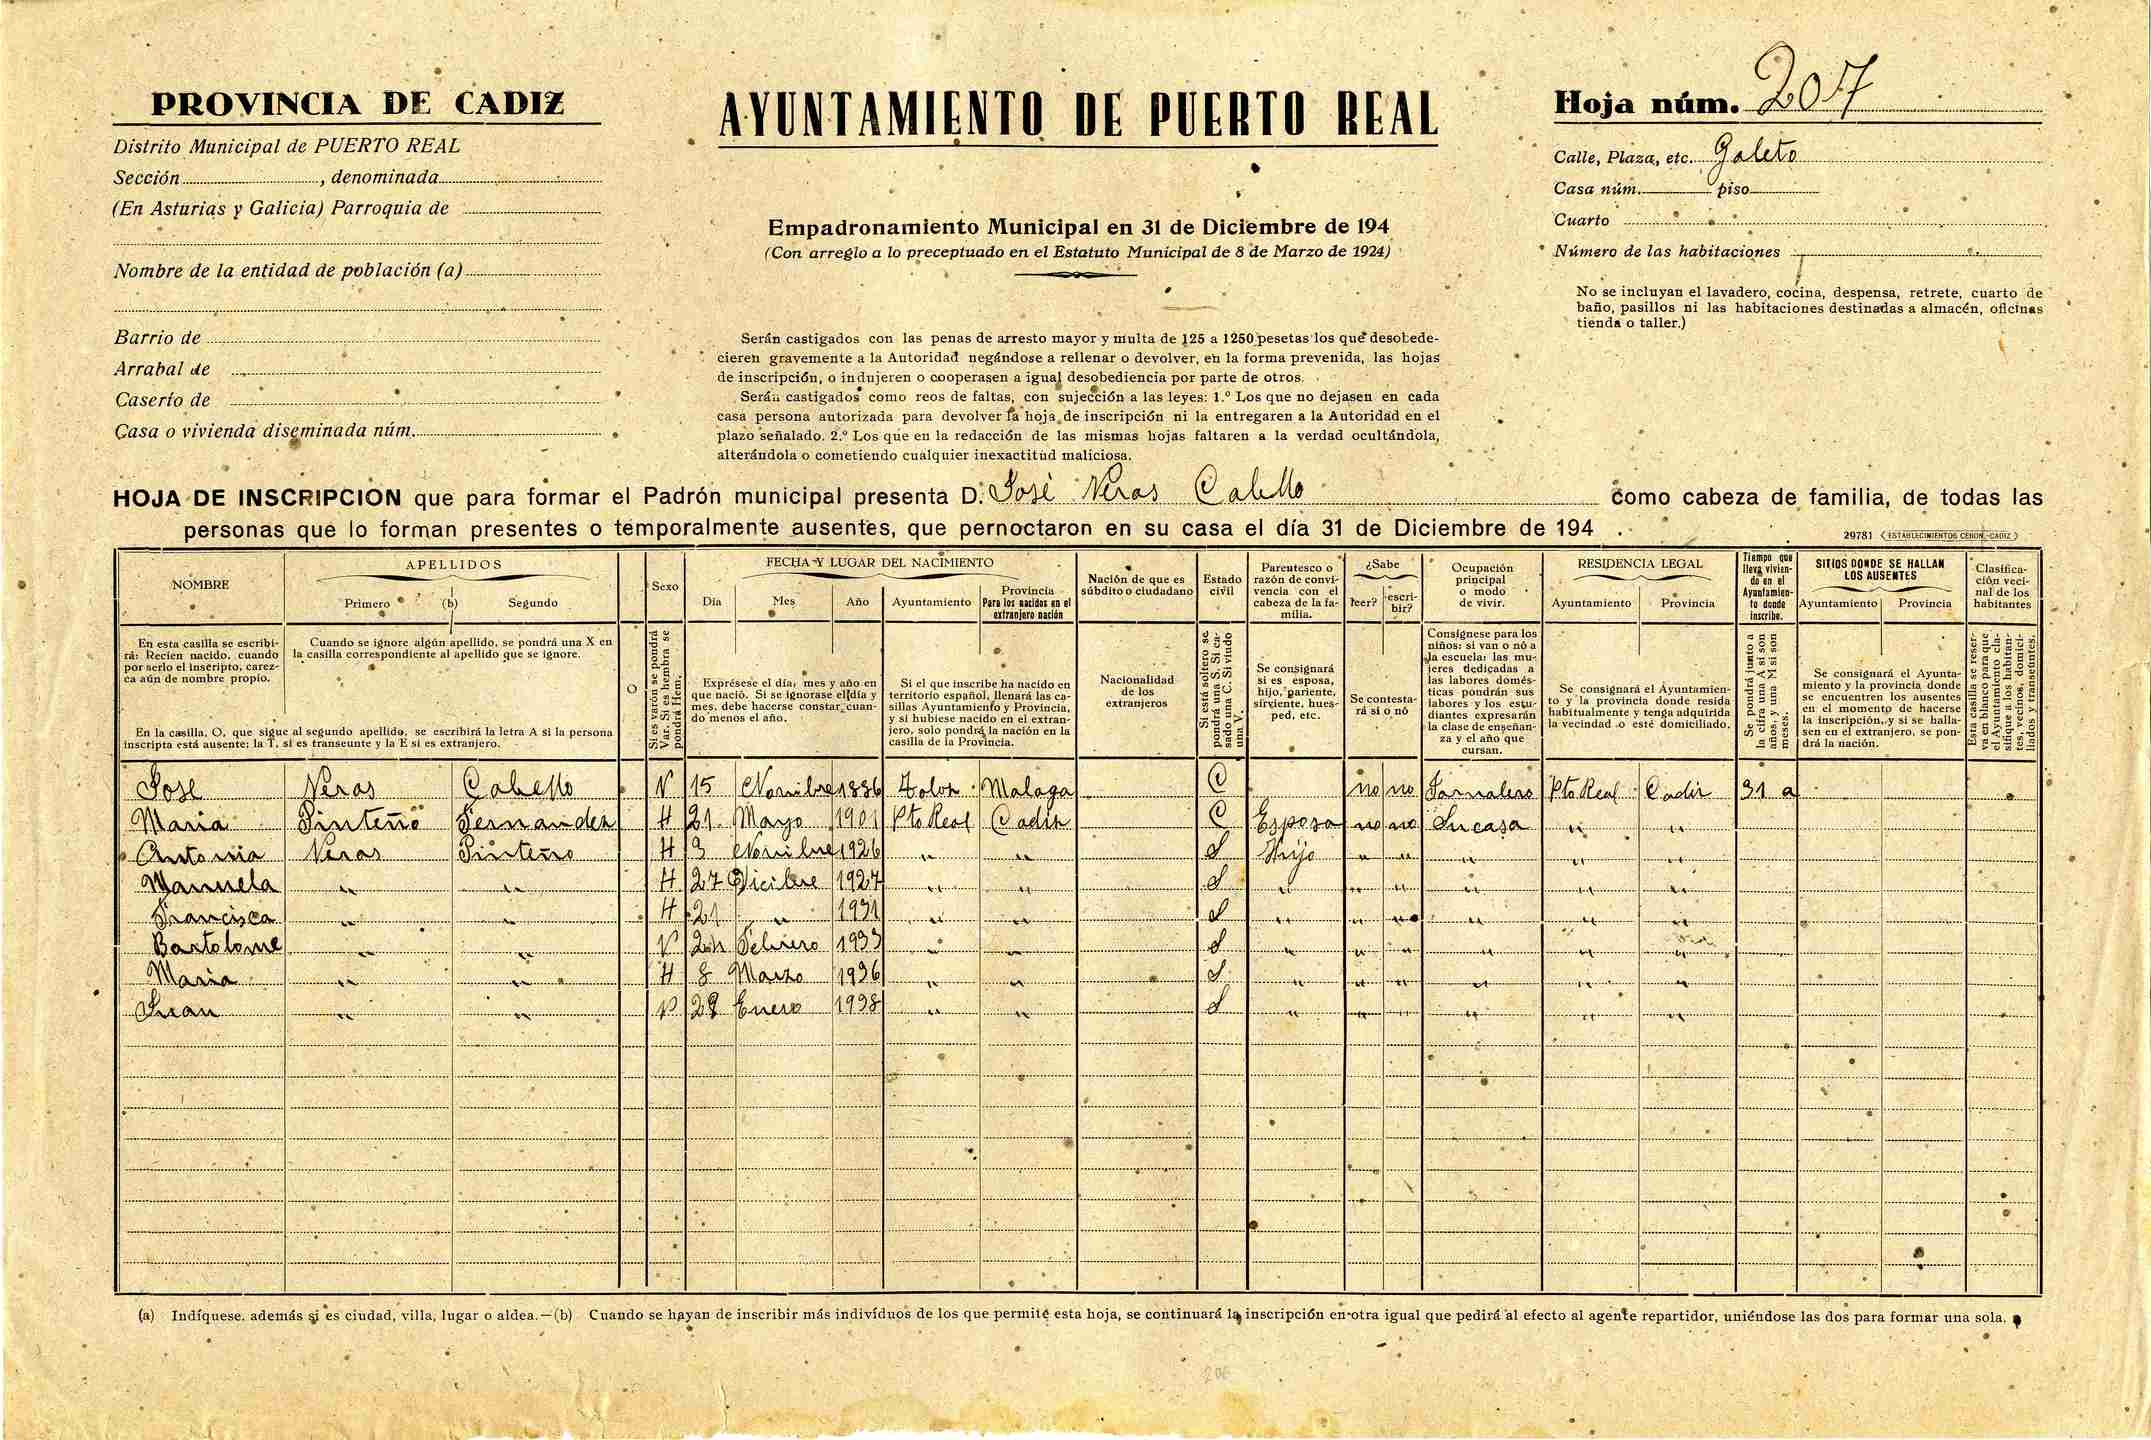 PROVINCIA DE CADIZ
Distrito Municipal de PUERTO REAL
Sección , denominada
(En Asturias y Galicia) Parroquia de
Nombre de la entidad de población (a)
Barrio de
Arrabal de
Caserío de
Casa o vivienda diseminada núm.
AYUNTAMIENTO DE PUERTO REAL
Empadronamiento Municipal en 31 de Diciembre de 194
(Con arreglo a lo preceptuado en el Estatuto Municipal de 8 de Marzo de 1924)
Serán castigados con las penas de arresto mayor y multa de 125 a 1250 pesetas los que desobede-
cieren gravemente a la Autoridad negándose a rellenar o devolver, en la forma prevenida, las hojas
de inscripción, o indujeren o cooperasen a igual desobediencia por parte de otros.
Serán castigados como reos de faltas, con sujección a las leyes: 1.º Los que no dejasen en cada
casa persona autorizada para devolver la hoja de inscripción ni la entregaren a la Autoridad en el
plazo señalado. 2.º Los que en la redacción de las mismas hojas faltaren a la verdad ocultándola,
alterándola o cometiendo cualquier inexactitud maliciosa.
Hoja núm. 207
Calle, Plaza, etc. Galeto
Casa núm. piso
Cuarto
Número de las habitaciones
No se incluyan el lavadero, cocina, despensa, retrete, cuarto de
baño, pasillos ni las habitaciones destinadas a almacén, oficinas
tienda o taller.)
HOJA DE INSCRIPCION que para formar el Padrón municipal presenta D. José Neras Cabello como cabeza de familia, de todas las
personas que lo forman presentes o temporalmente ausentes, que pernoctaron en su casa el día 31 de Diciembre de 194 .
29781 (ESTABLECIMIENTOS CERON.-CADIZ)
NOMBRE
En esta casilla se escribi-
rá: Recien nacido, cuando
por serlo el inscripto, carez-
ca aún de nombre propio.
APELLIDOS
Primero (b) Segundo
Cuando se ignore algún apellido, se pondrá una X en
la casilla correspondiente al apellido que se ignore.
En la casilla, O, que sigue al segundo apellido, se escribirá la letra A si la persona
inscripta está ausente; la T, si es transeunte y la E si es extranjero.
O
Sexo
Si es varón se pondrá
Var. Si es hembra se
pondrá Hem.
FECHA Y LUGAR DEL NACIMIENTO
Día Mes Año Ayuntamiento
Provincia
Para los nacidos en el
extranjero nación
Exprésese el día, mes y año en
que nació. Si se ignorase el día y
mes, debe hacerse constar cuan-
do menos el año.
Si el que inscribe ha nacido en
territorio español, llenará las ca-
sillas Ayuntamiento y Provincia,
y si hubiese nacido en el extran-
jero, solo pondrá la nación en la
casilla de la Provincia.
Nación de que es
súbdito o ciudadano
Nacionalidad
de los
extranjeros
Estado
civil
Si está soltero se
pondrá una S. Si ca-
sado una C. Si viudo
una V.
Parentesco o
razón de convi-
vencia con el
cabeza de la fa-
milia.
Se consignará
si es esposa,
hijo, pariente,
sirviente, hues-
ped, etc.
¿Sabe
leer? escri-
bir?
Se contesta-
rá sí o nó
Ocupación
principal
o modo
de vivir.
Consígnese para los
niños: si van o nó a
la escuela: las mu-
jeres dedicadas a
las labores domés-
ticas pondrán sus
labores y los estu-
diantes expresarán
la clase de enseñan-
za y el año que
cursan.
RESIDENCIA LEGAL
Ayuntamiento Provincia
Se consignará el Ayuntamien-
to y la provincia donde resida
habitualmente y tenga adquirida
la vecindad o esté domiciliado.
Tiempo que
lleva vivien-
do en el
Ayuntamien-
to donde
inscribe.
Se pondrá junto a
la cifra una A si son
años, y una M si son
meses.
SITIOS DONDE SE HALLAN
LOS AUSENTES
Ayuntamiento Provincia
Se consignará el Ayunta-
miento y la provincia donde
se encuentren los ausentes
en el momento de hacerse
la inscripción, y si se halla-
sen en el extranjero, se pon-
drá la nación.
Clasifica-
ción veci-
nal de los
habitantes
Esta casilla se reser-
va en blanco para que
el Ayuntamiento cla-
sifique a los habitan-
tes, vecinos, domici-
liados y transeúntes.
Jose Neras Cabello V 15 Novibre 1886 Tolox Malaga C no no Jornalero Pto Real Cadiz 31 a
Maria Pinteño Fernandez H 21 Mayo 1901 Pto Real Cadiz C Esposa no no Sucasa " "
Antonia Neras Pinteño H 3 Novibre 1926 " " S Hijo " " " " "
Manuela " " H 27 Dicibre 1927 " " S " " " " " "
Francisca " " H 21 " 1931 " " S " " " " " "
Bartolome " " V 24 Febrero 1933 " " S " " " " " "
Maria " " H 8 Marzo 1936 " " S " " " " " "
Juan " " V 28 Enero 1938 " " S " " " " " "
(a) Indíquese, además si es ciudad, villa, lugar o aldea.—(b) Cuando se hayan de inscribir más indivíduos de los que permite esta hoja, se continuará la inscripción en otra igual que pedirá al efecto al agente repartidor, uniéndose las dos para formar una sola.
206